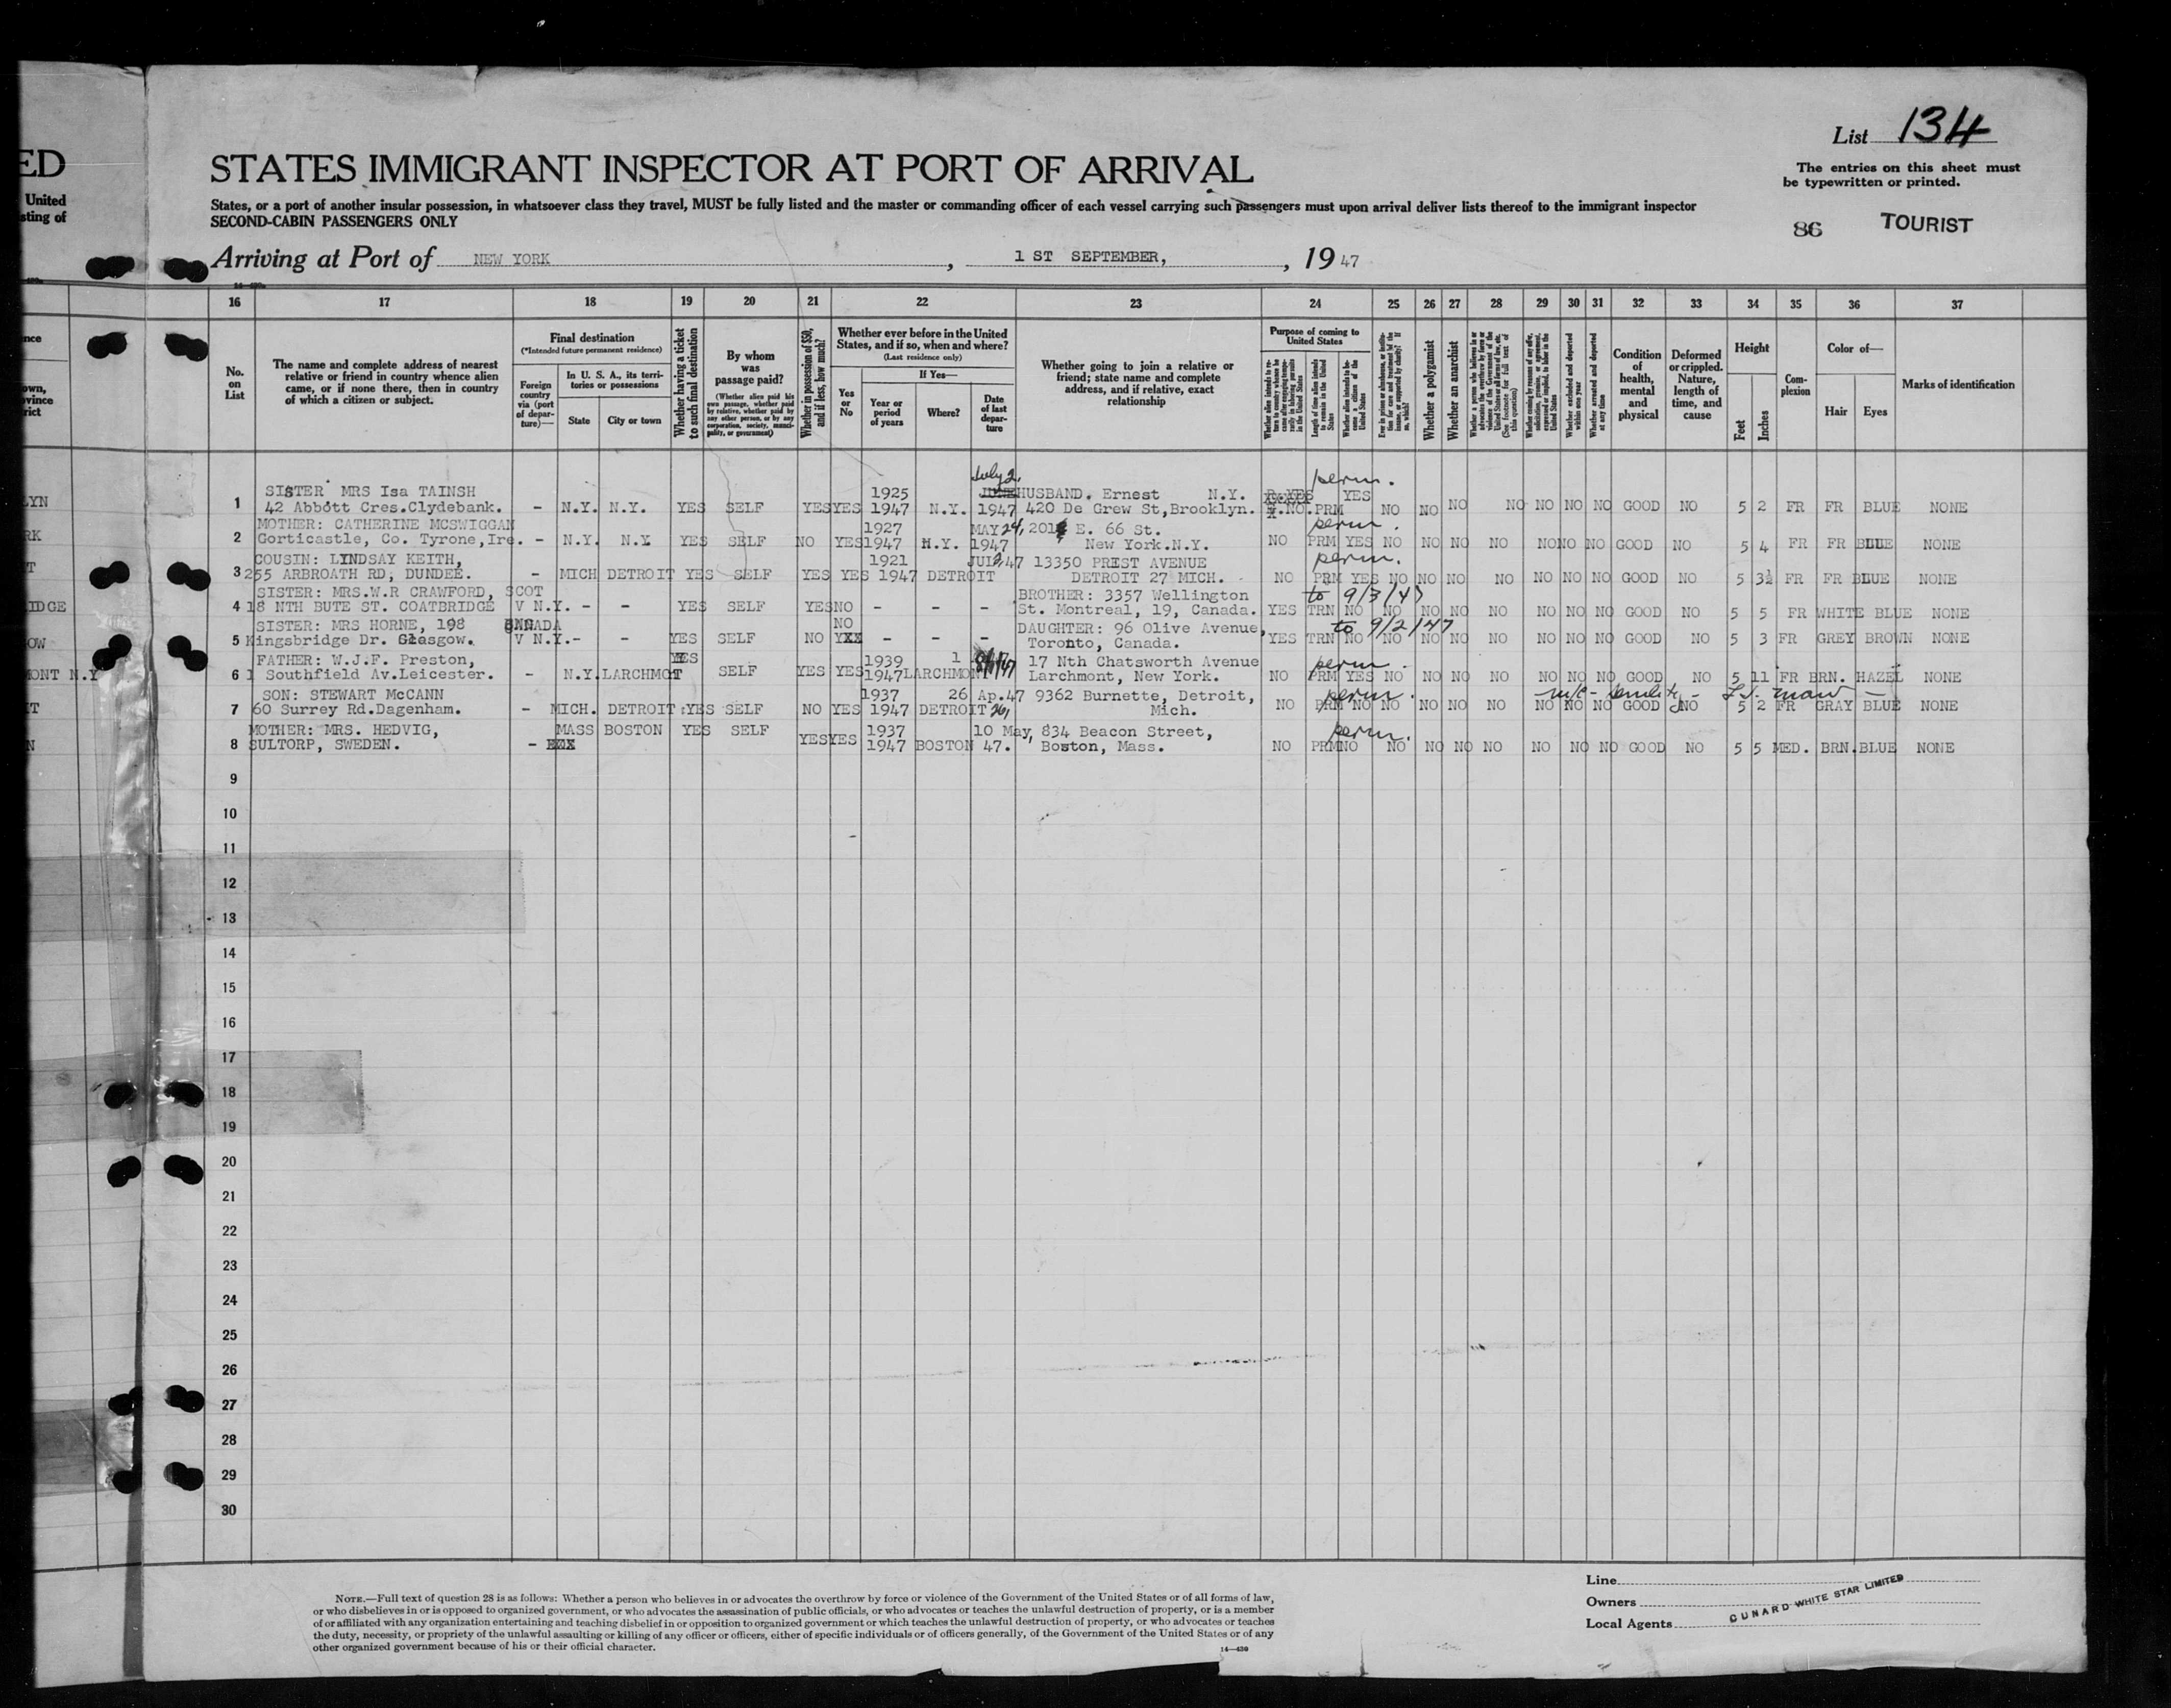 List 134
The entries on this sheet must
be typewritten or printed.
ED
STATES IMMIGRANT INSPECTOR AT PORT OF ARRIVAL
United
sting of
States, or a port of another insular possession, in whatsoever class they travel, MUST be fully listed and the master or commanding officer of each vessel carrying such passengers must upon arrival deliver lists thereof to the immigrant inspector
SECOND-CABIN PASSENGERS ONLY
86 TOURIST
Arriving at Port of NEW YORK, 1 ST SEPTEMBER, , 19 47
16 17 18 19 20 21 22 23 24 25 26 27 28 29 30 31 32 33 34 35 36 37
No. on List
The name and complete address of nearest relative or friend in country whence alien came, or if none there, then in country of which a citizen or subject.
Final destination
(*Intended future permanent residence)
Foreign country via (port of departure)—
In U. S. A., its territories or possessions
State City or town
Whether having a ticket to such final destination
By whom was passage paid?
(Whether alien paid his own passage, whether paid by relative, whether paid by any other person, or by any corporation, society, municipality, or government)
Whether in possession of $50, and if less, how much?
Whether ever before in the United States, and if so, when and where?
(Last residence only)
Yes or No
If Yes—
Year or period of years Where? Date of last departure
Whether going to join a relative or friend; state name and complete address, and if relative, exact relationship
Purpose of coming to United States
Whether alien intends to return to country whence he came after engaging temporarily in laboring pursuits in the United States
Length of time alien intends to remain in the United States
Whether alien intends to become a citizen of the United States
Whether a polygamist
Whether an anarchist
Whether excluded and deported within one year
Whether arrested and deported at any time
Condition of health, mental and physical
Deformed or crippled. Nature, length of time, and cause
Height
Feet Inches
Complexion
Color of—
Hair Eyes
Marks of identification
LYN 1 SISTER MRS Isa TAINSH
42 Abbott Cres.Clydebank. - N.Y. N.Y. YES SELF YES YES 1925 1947 N.Y. July 2, 1947 HUSBAND. Ernest N.Y.
420 De Grew St,Brooklyn. NO. PRM perm. YES NO NO NO NO NO NO NO GOOD NO 5 2 FR FR BLUE NONE
RK 2 MOTHER: CATHERINE MCSWIGGAN
Gorticastle, Co. Tyrone,Ire. - N.Y. N.Y YES SELF NO YES 1927 1947 N.Y. MAY 24, 1947 201 E. 66 St.
New York.N.Y. NO PRM perm. YES NO NO NO NO NO NO NO GOOD NO 5 4 FR FR BLUE NONE
T 3 COUSIN: LINDSAY KEITH,
255 ARBROATH RD, DUNDEE. - MICH DETROIT YES SELF YES YES 1921 1947 DETROIT 47 13350 PREST AVENUE
DETROIT 27 MICH. NO PRM perm. YES NO NO NO NO NO NO NO GOOD NO 5 3½ FR FR BLUE NONE
IDGE 4 SISTER: MRS.W.R CRAWFORD, SCOT
18 NTH BUTE ST. COATBRIDGE V N.Y. - - YES SELF YES NO - - - BROTHER: 3357 Wellington
St. Montreal, 19, Canada. YES TRN to 9/3/47 NO NO NO NO NO NO NO NO GOOD NO 5 5 FR WHITE BLUE NONE
OW 5 SISTER: MRS HORNE, 198 CANADA
Kingsbridge Dr. Glasgow. V N.Y.- - YES SELF NO NO - - - DAUGHTER: 96 Olive Avenue,
Toronto, Canada. YES TRN to 9/2/47 NO NO NO NO NO NO NO NO GOOD NO 5 3 FR GREY BROWN NONE
MONT N.Y 6 FATHER: W.J.F. Preston,
1 Southfield Av.Leicester. - N.Y. LARCHMONT YES SELF YES YES 1939 1947 LARCHMONT 17 Nth Chatsworth Avenue
Larchmont, New York. NO PRM perm. YES NO NO NO NO NO NO NO GOOD NO 5 11 FR BRN. HAZEL NONE
IT 7 SON: STEWART McCANN
60 Surrey Rd.Dagenham. - MICH. DETROIT YES SELF NO YES 1937 1947 DETROIT 26 Ap.47 9362 Burnette, Detroit,
Mich. NO PRM perm. NO NO NO NO NO NO NO NO GOOD NO 5 2 FR GRAY BLUE NONE
N 8 MOTHER: MRS. HEDVIG,
SULTORP, SWEDEN. - MASS BOSTON YES SELF YES YES 1937 1947 BOSTON 10 May, 47. 834 Beacon Street,
Boston, Mass. NO PRM perm. NO NO NO NO NO NO NO NO GOOD NO 5 5 MED. BRN. BLUE NONE
9
10
11
12
13
14
15
16
17
18
19
20
21
22
23
24
25
26
27
28
29
30
NOTE.—Full text of question 28 is as follows: Whether a person who believes in or advocates the overthrow by force or violence of the Government of the United States or of all forms of law,
or who disbelieves in or is opposed to organized government, or who advocates the assassination of public officials, or who advocates or teaches the unlawful destruction of property, or is a member
of or affiliated with any organization entertaining and teaching disbelief in or opposition to organized government or which teaches the unlawful destruction of property, or who advocates or teaches
the duty, necessity, or propriety of the unlawful assaulting or killing of any officer or officers, either of specific individuals or of officers generally, of the Government of the United States or of any
other organized government because of his or their official character.
14—430
Line
Owners
Local Agents
CUNARD WHITE STAR LIMITED